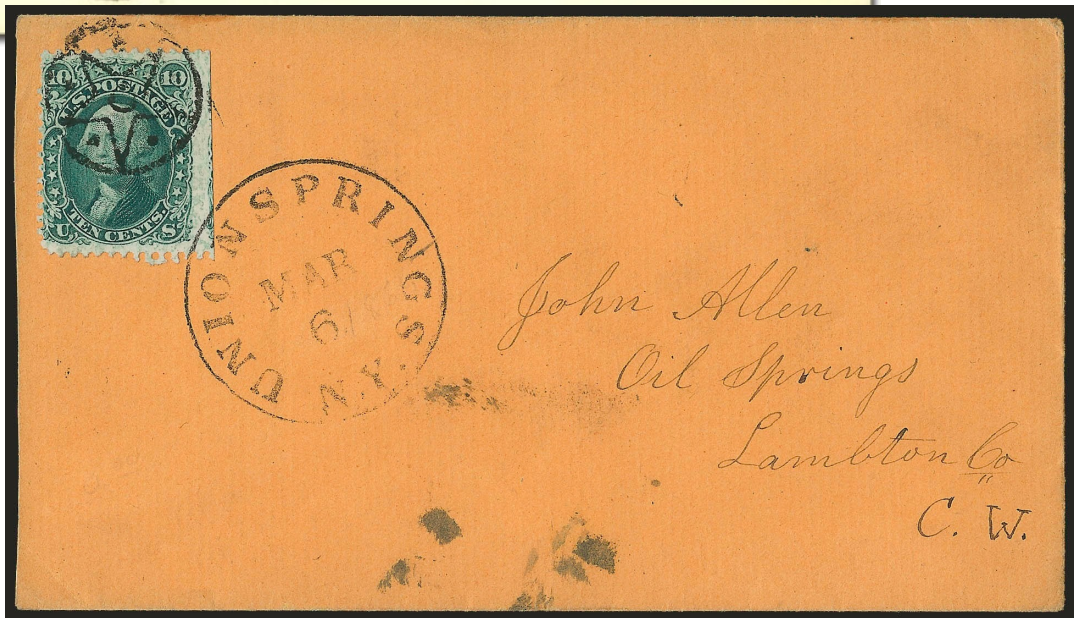 10 10
U.S. POSTAGE
TEN CENTS.
U S
UNION SPRINGS N.Y.
MAR
6
John Allen
Oil Springs
Lambton Co
C. W.